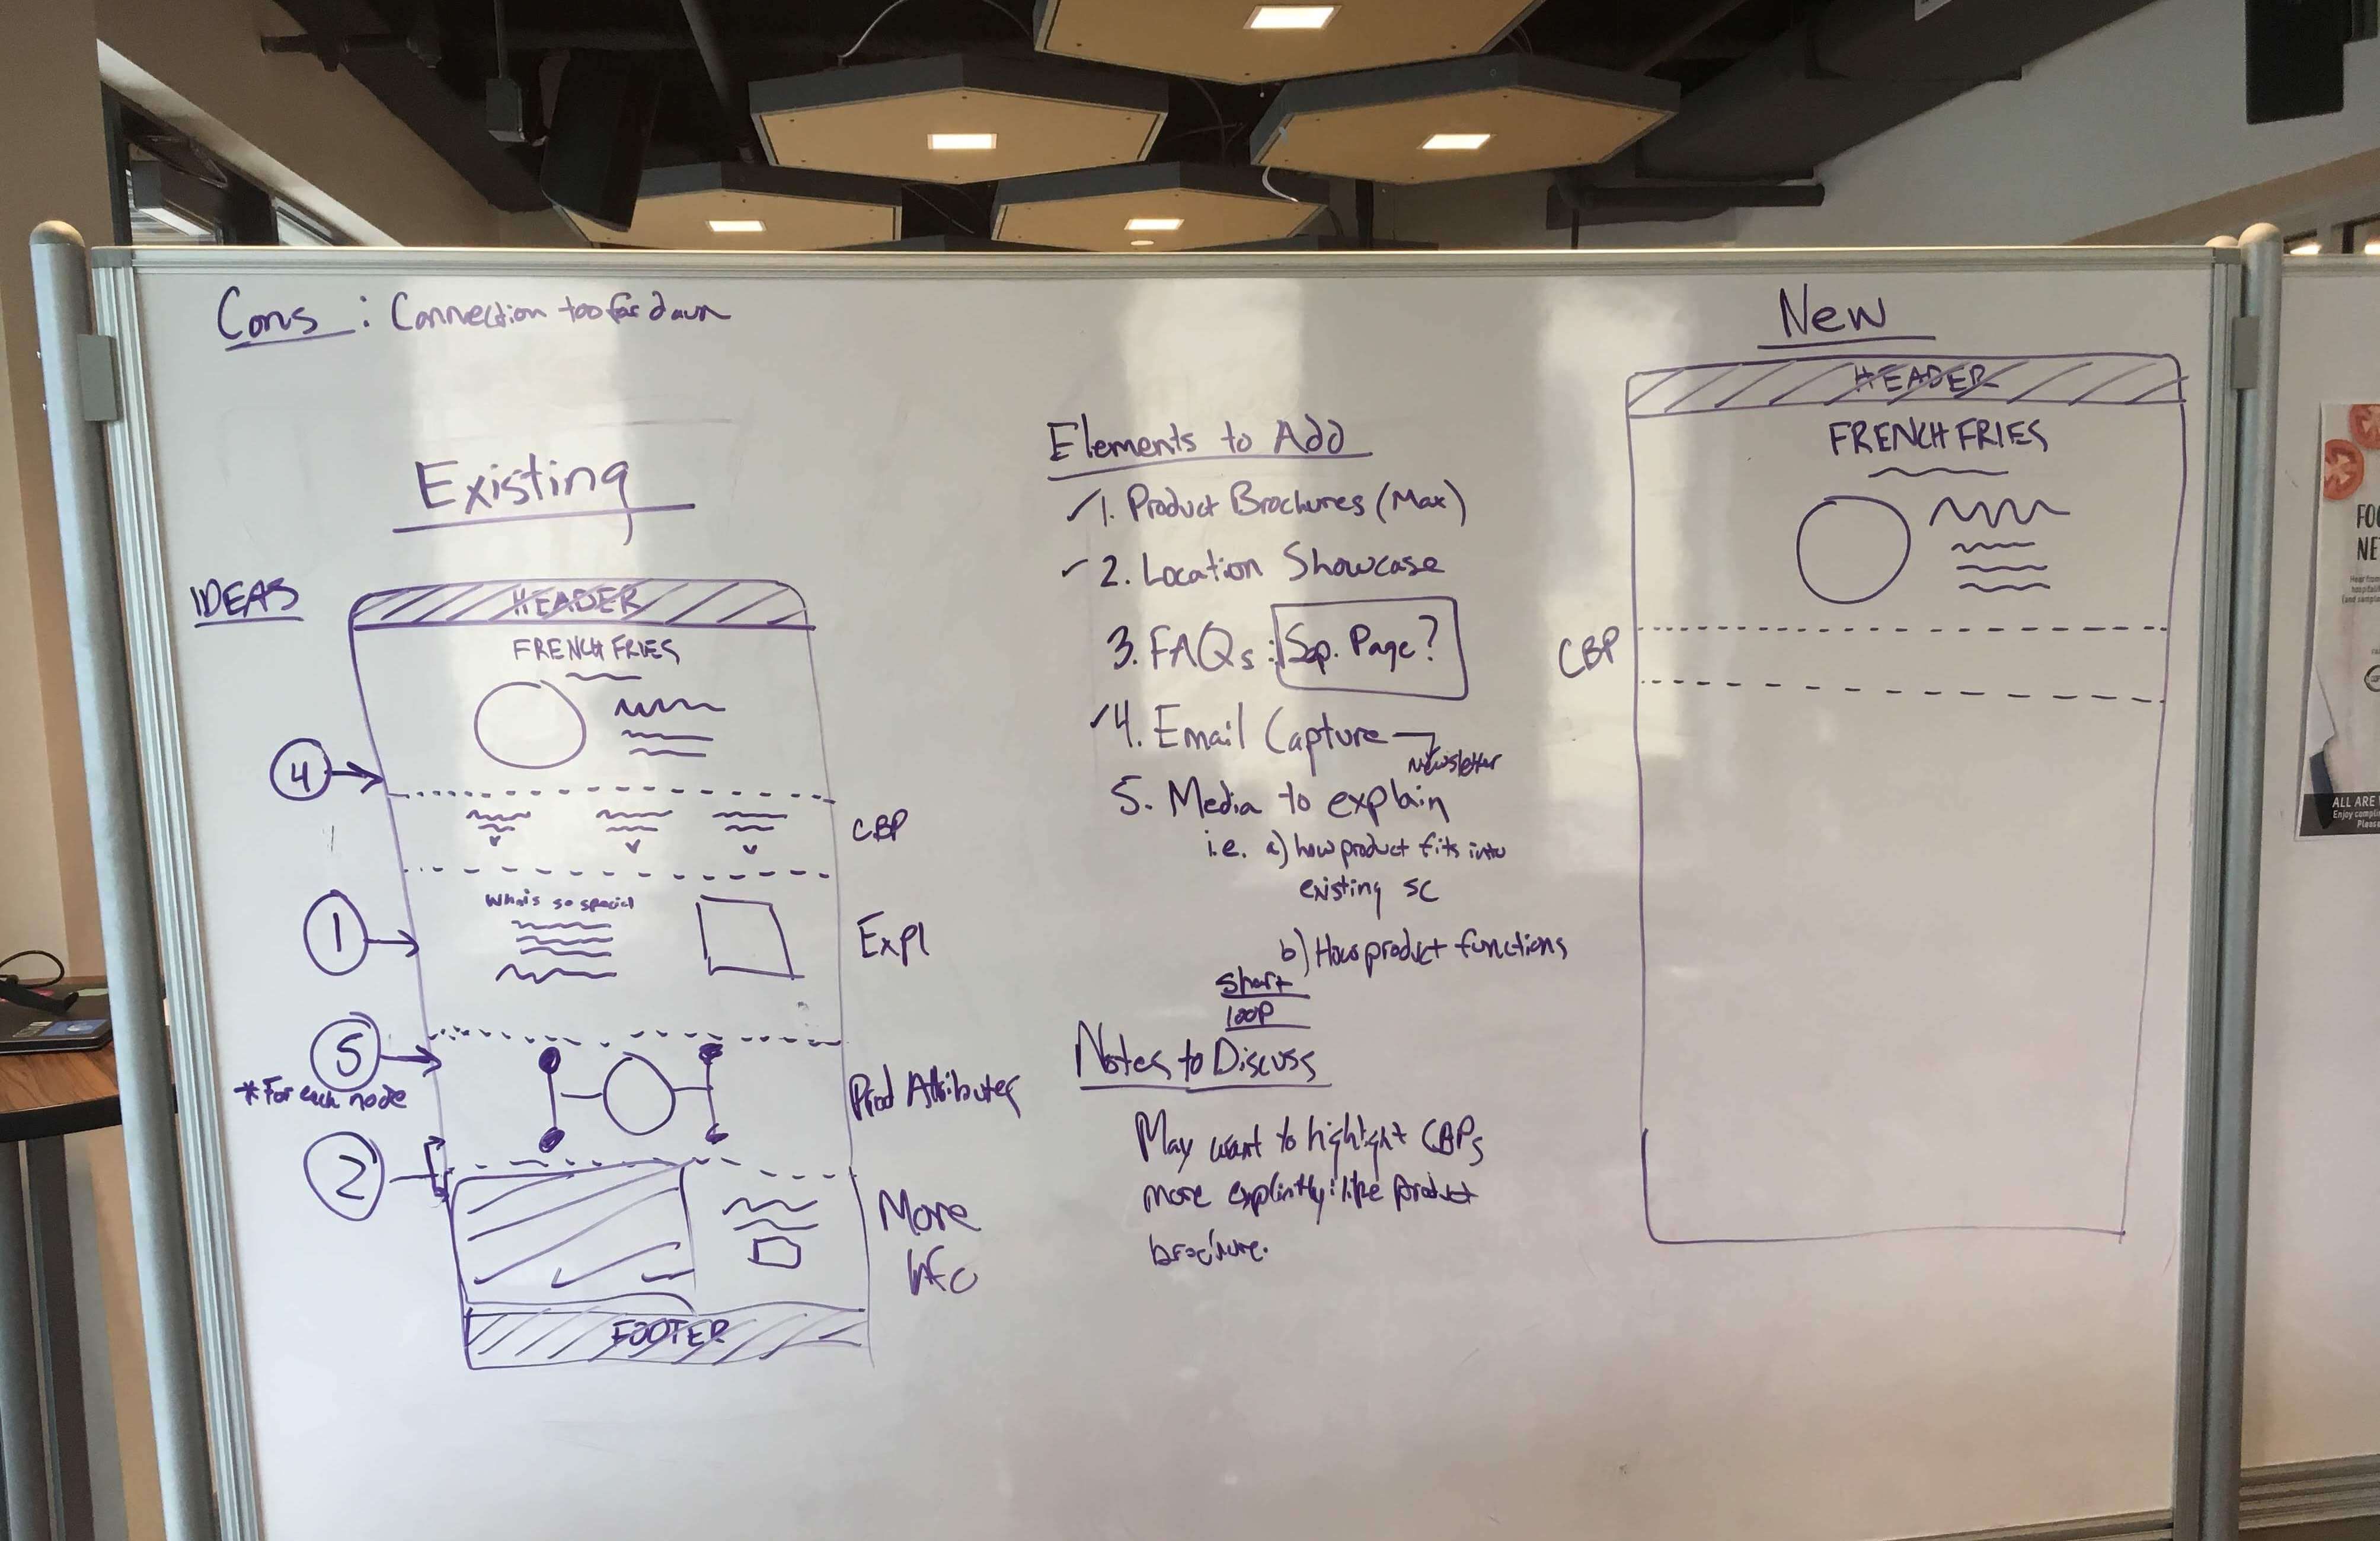 Cons : Connection too far down
Existing
IDEAS
HEADER
FRENCH FRIES
4
CBP
1
What's so special
Expl
5
*For each node
Prod Attributes
2
More
Info
FOOTER
Elements to Add
✓1. Product Brochures (Max)
✓2. Location Showcase
3. FAQs : Sep. Page?
✓4. Email Capture
Newsletter
5. Media to explain
i.e. a) how product fits into
existing SC
b) How product functions
short
loop
Notes to Discuss
May want to highlight CBPs
more explicitly: like product
brochure.
New
HEADER
FRENCH FRIES
CBP
ALL ARE